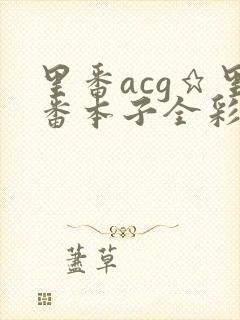 里番acg☆里
番本子全彩
蓋草